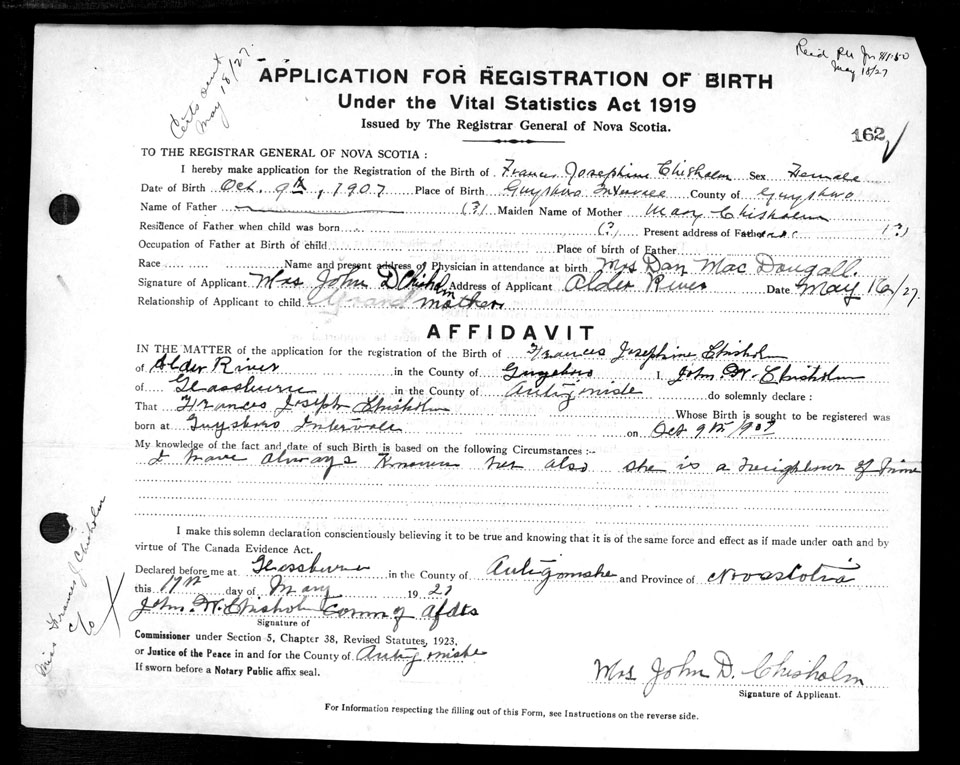 Certs sent
May 18/27.
May 18/27
APPLICATION FOR REGISTRATION OF BIRTH
Under the Vital Statistics Act 1919
Issued by The Registrar General of Nova Scotia.
162
TO THE REGISTRAR GENERAL OF NOVA SCOTIA :
I hereby make application for the Registration of the Birth of Frances Josephine Chisholm Sex Female
Date of Birth Oct. 9th, 1907 Place of Birth Guysboro Intervale County of Guysboro
Name of Father (?) Maiden Name of Mother Mary Chisholm
Residence of Father when child was born (?) Present address of Father (?)
Occupation of Father at Birth of child Place of birth of Father
Race Name and present address of Physician in attendance at birth Mrs Dan MacDougall.
Signature of Applicant Mrs John D Chisholm Address of Applicant Alder River Date May 16/27.
Relationship of Applicant to child Grand mother
AFFIDAVIT
IN THE MATTER of the application for the registration of the Birth of Frances Josephine Chisholm
of Alder River in the County of Guysboro I, John. W. Chisholm
of Glassburne in the County of Antigonishe do solemnly declare :
That Frances Joseph Chisholm Whose Birth is sought to be registered was
born at Guysboro Intervale on Oct 9th 1907
My knowledge of the fact and date of such Birth is based on the following Circumstances :-
I have always known her also she is a neighbour of mine
I make this solemn declaration conscientiously believing it to be true and knowing that it is of the same force and effect as if made under oath and by
virtue of The Canada Evidence Act.
Declared before me at Glassburne in the County of Antigonishe and Province of Nova Scotia
this 17th day of May 1927
John. W. Chisholm Comm of Afdts
Signature of
Commissioner under Section 5, Chapter 38, Revised Statutes, 1923,
or Justice of the Peace in and for the County of Antigonishe
If sworn before a Notary Public affix seal.
Mrs John D. Chisholm
Signature of Applicant.
For Information respecting the filling out of this Form, see Instructions on the reverse side.
Miss Frances J Chisholm
c/o X